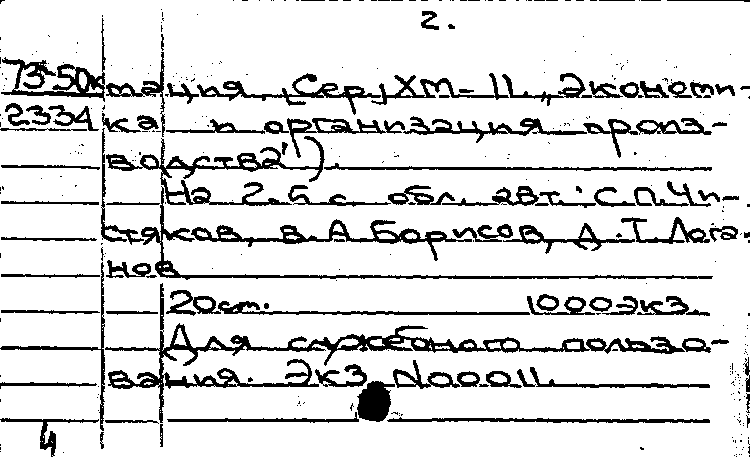 2.
73-50к мация. [Сер.] ХМ-11. „Экономи-
2334 ка и организация произ-
водства").
На 2.5 с. обл. авт.: С.П.Чи-
стяков, В.А Борисов, Д.Т.Лога-
нов
20 см. 1000 экз.
Для служебного пользо-
вания. Экз N00011.
4